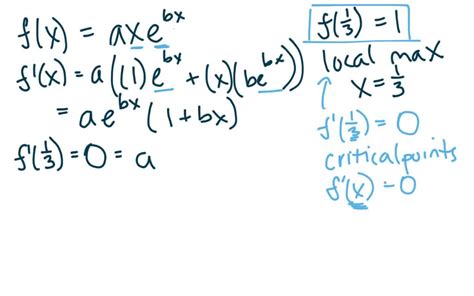 f(x) = axe^{bx}
f'(x) = a((1)e^{bx} + (x)(be^{bx}))
= ae^{bx}(1+bx)
f'(1/3) = 0 = a
f(1/3) = 1
local max
x = 1/3
f'(1/3) = 0
critical points
f'(x) = 0